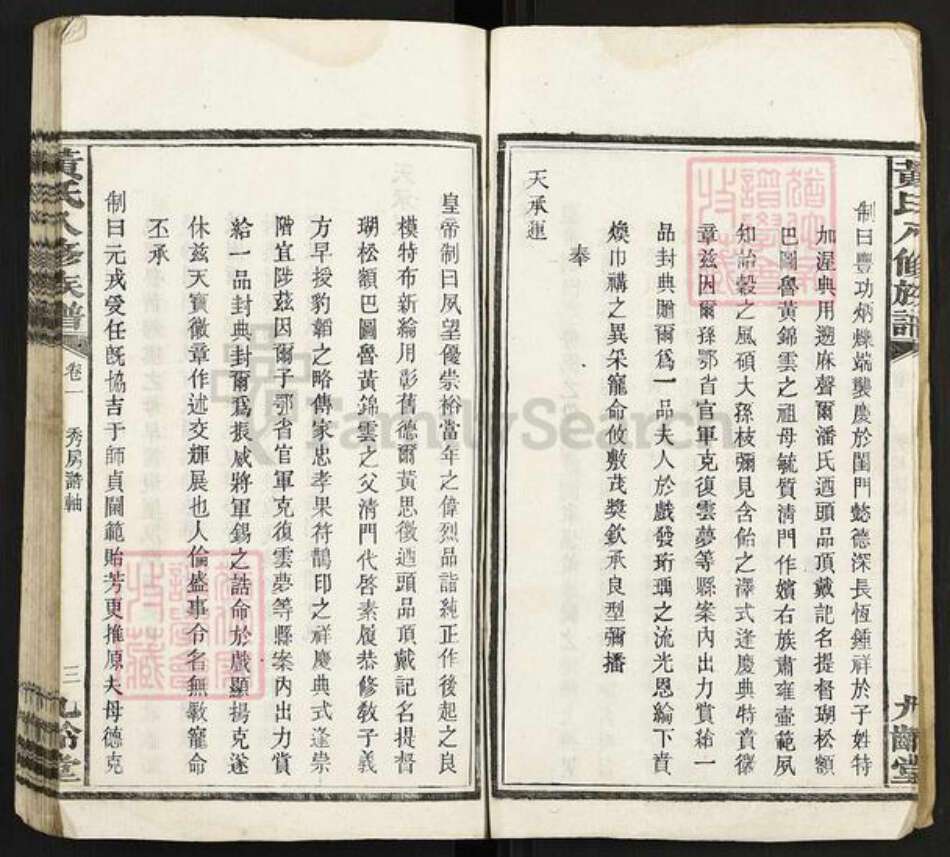 黃氏八修族譜
九齡堂
制曰豐功炳爍端襲慶於閨門懿德深長恆鍾祥於子姓特
加渥典用遡麻聲爾潘氏迺頭品頂戴記名提督瑚松額
巴圖魯黃錦雲之祖母毓質清門作嬪右族肅雍壼範夙
知詒穀之風碩大孫枝彌見含飴之澤式逢慶典特賁徽
章茲因爾孫鄂省官軍克復雲夢等縣案內出力賞給一
品封典贈爾爲一品夫人於戲發珩瑀之流光恩綸下賁
煥巾褠之異采寵命攸敷茂獎欽承良型彌播
奉
天承運
皇帝制曰夙望優崇裕當年之偉烈品詣純正作後起之良
模特布新綸用彰舊德爾黃思徵迺頭品頂戴記名提督
瑚松額巴圖魯黃錦雲之父清門代啓素履恭修敎子義
方早授豹韜之略傳家忠孝果符鵲印之祥慶典式逢崇
階宜陟茲因爾子鄂省官軍克復雲夢等縣案內出力賞
給一品封典封爾爲振威將軍錫之誥命於戲顯揚克遂
休茲天寶徽章作述交輝展也人倫盛事令名無斁寵命
丕承
制曰元戎受任旣協吉于師貞閫範貽芳更推原夫母德克
黃氏八修族譜
卷一
秀房誥軸
三
九齡堂
FamilySearch